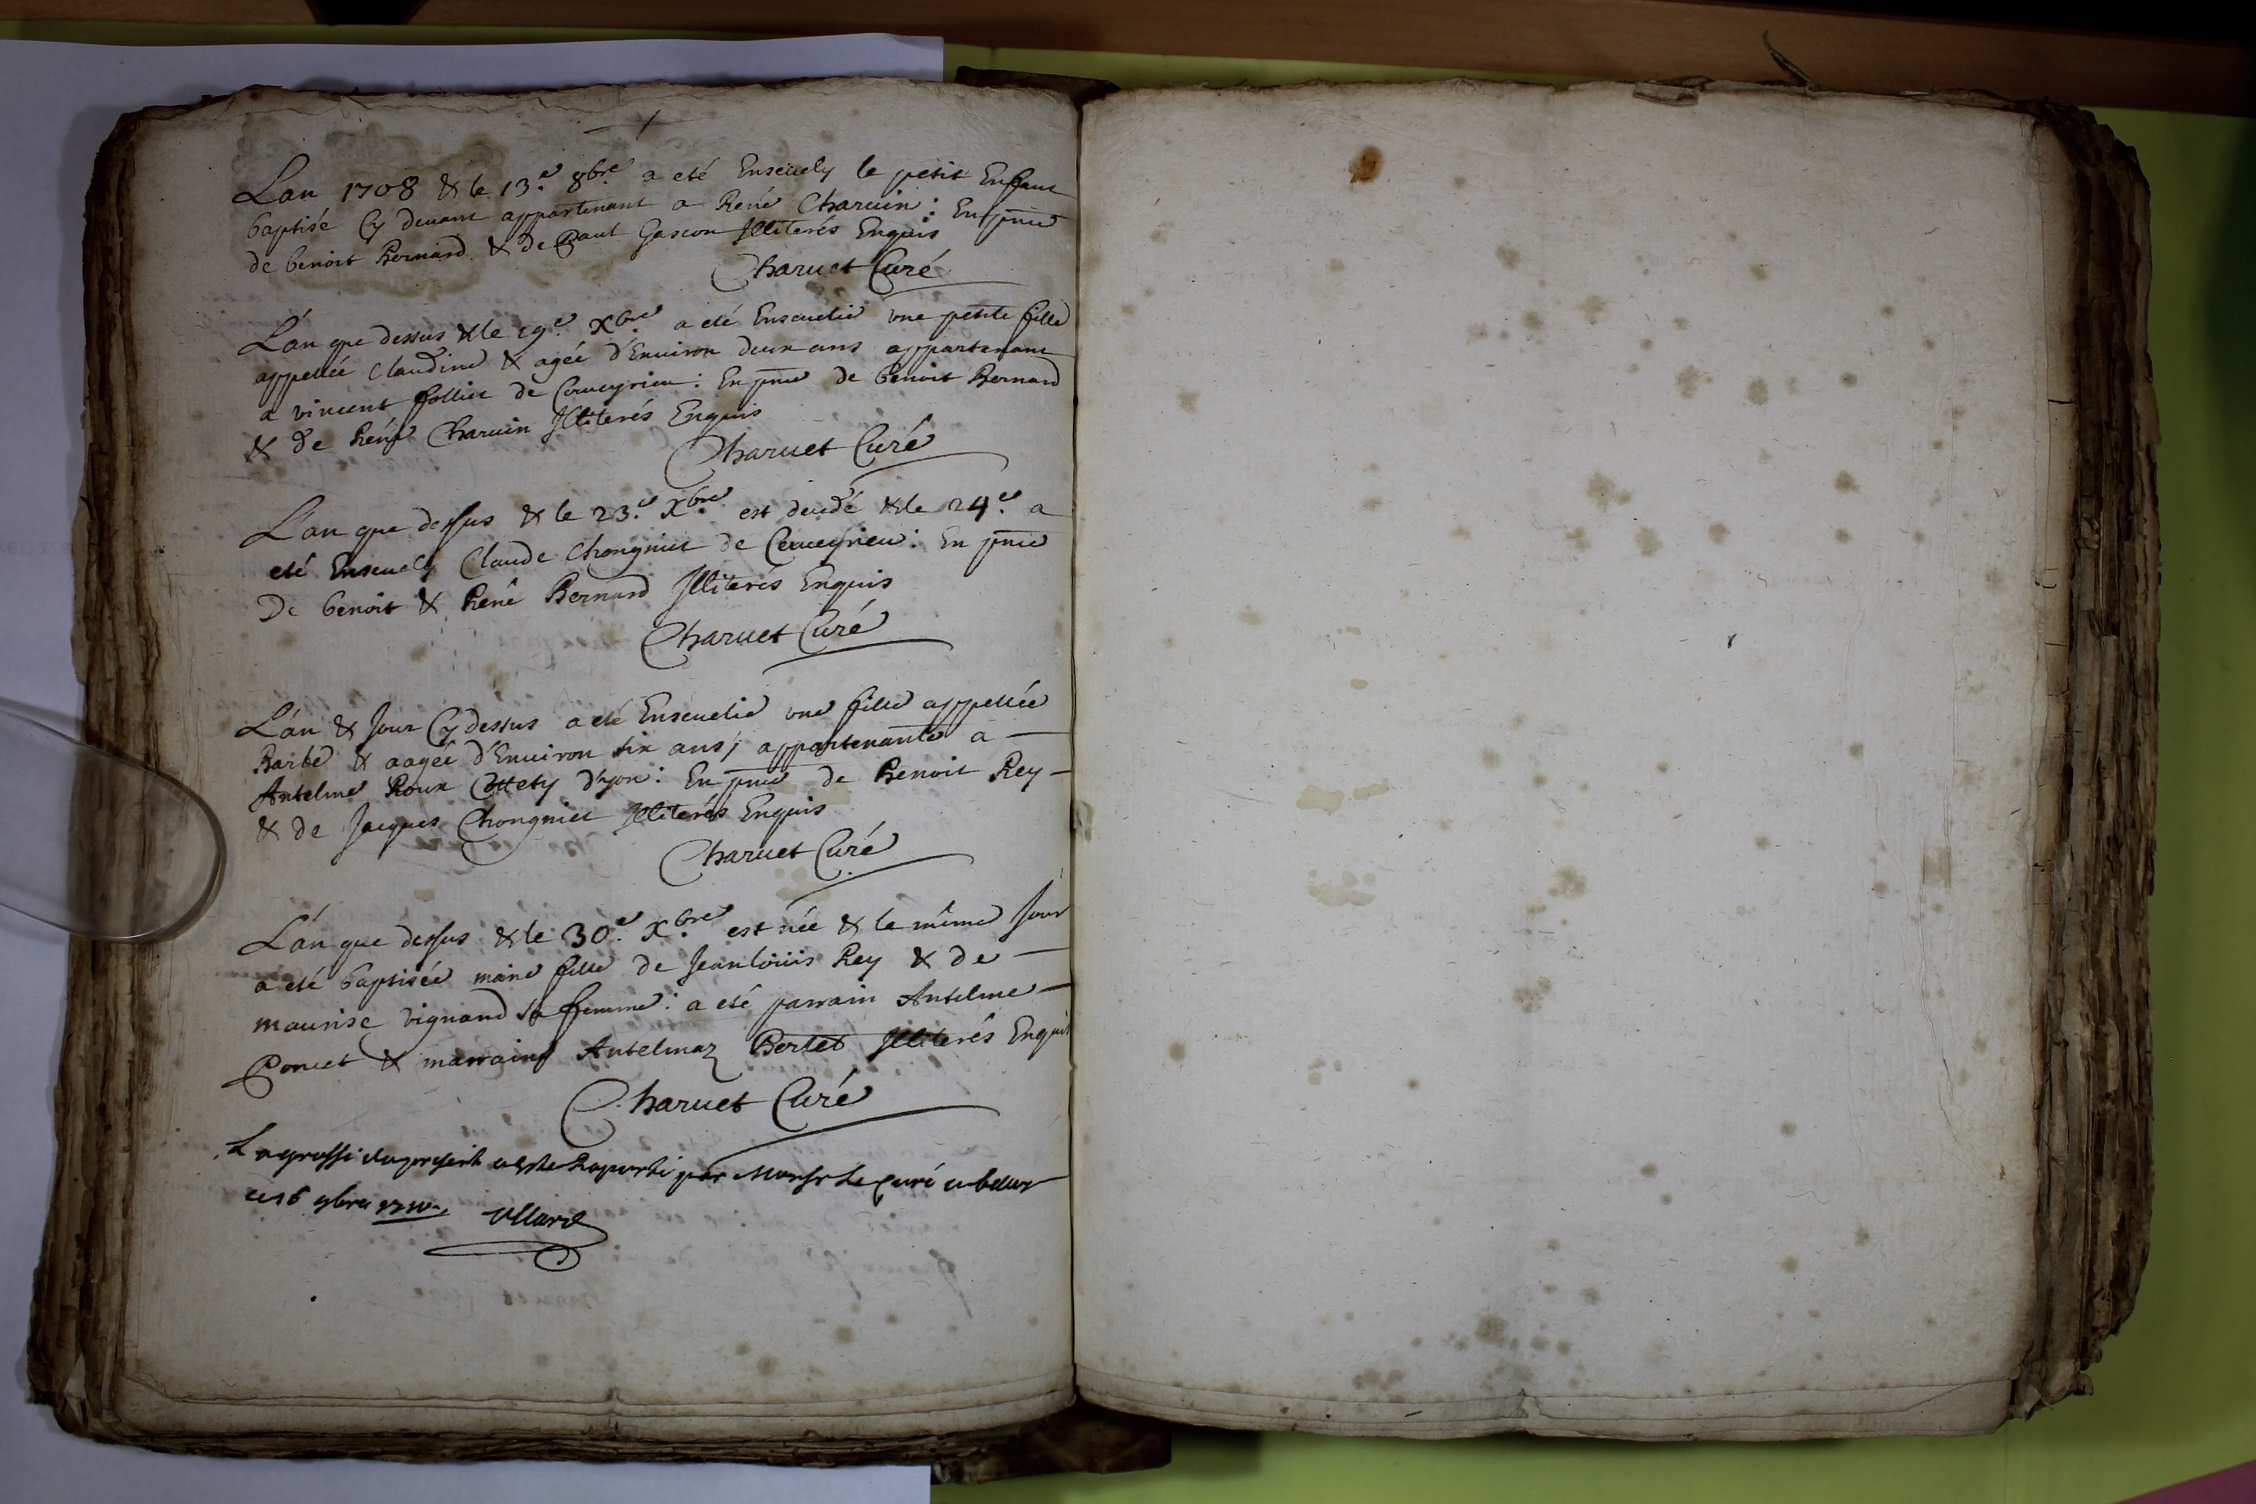 Lan 1708 & le 13.e 8bre a eté Enseuely le petit Enfant
baptisé Cy deuant appartenant a René Charuin: En pnce
de benoit Bernard & de Paul Gascon Illiterés Enquis
Charuet Curé
L'an que dessus & le 19.e Xbre a eté Enseuelie vne petite fille
appellée Claudine & agée d'Enuiron deux ans appartenant
a vincent follier de Couueyrieu: En pnce de benoit Bernard
& de René Charuin Illiterés Enquis
Charuet Curé
L'an que dessus & le 23.e Xbre est decedé & le 24.e a
eté Enseuely Claude Chongnier de Cerueyrieu: En pnce
De benoit & René Bernard Illiterés Enquis
Charuet Curé
L'an & Jour Cy dessus a eté Enseuelie vne fille appellée
Barbe & aagée d'Enuiron six ans, appartenante a
Antelme Roux d'yon: En pnce de Benoit Rey
& de Jacques Chongnier Illiterés Enquis
Charuet Curé
L'an que dessus & le 30.e Xbre est née & le même Jour
a eté baptisée marie fille de Jean loüis Rey & de
maurise vignand sa femme: a eté parrain Antelme
Poncet & marraine Antelmaz Bertet Illiterés Enquis
Charuet Curé
La grosse du present a este Raporté par Monsr Le curé
ce 16 9bre